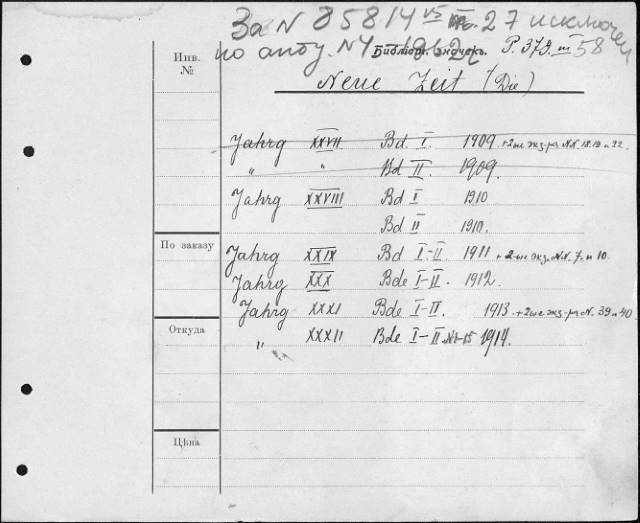 За N 85814 VII 27 исключен
по акту. N 1 Р. 379. III 58
Инв. №
Neue Zeit (Die)
Jahrg XXVII. Bd. I. 1909. + 2-ые экз-ры N.N. 18.19 и 22.
„ „ Bd II. 1909.
Jahrg XXVIII Bd I 1910
Bd II 1910.
По заказу
Jahrg XXIX Bd I–II. 1911 + 2-ые экз. N.N. 7. и 10.
Jahrg XXX Bde I–II. 1912.
Jahrg XXXI Bde I–II. 1913 + 2 ые экз-ры N. 39 и 40.
Откуда
„ XXXII Bde I–II №1-15 1914.
Цѣна